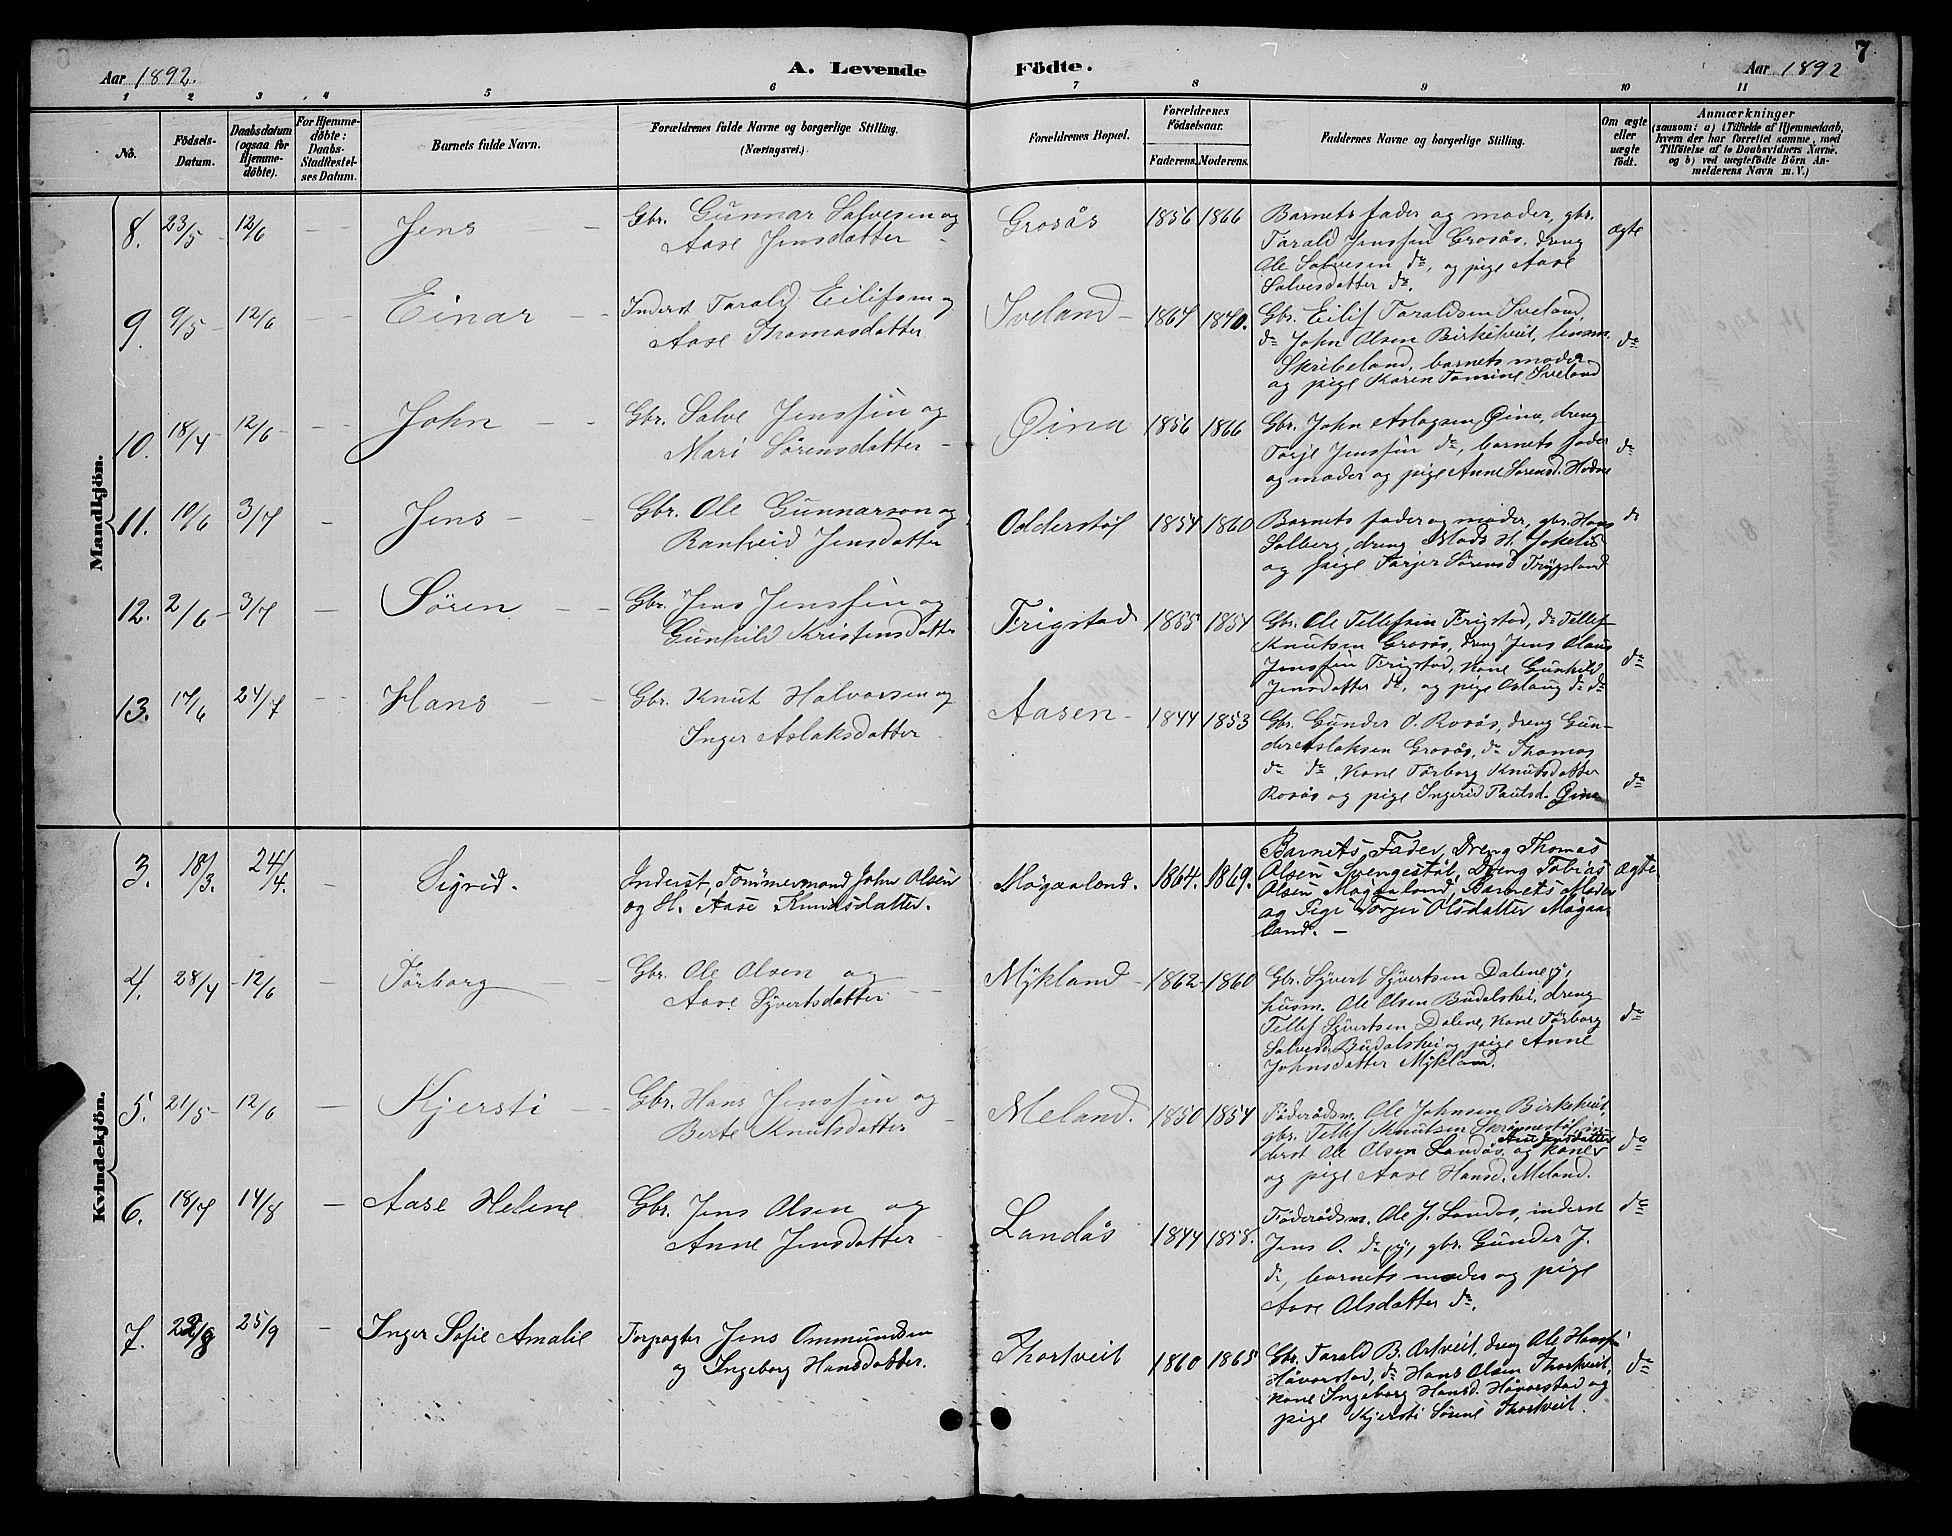 7
Aar 1892. A. Levende Födte. Aar 1892
1 2 3 4 5 6 7 8 9 10 11
No.
Födsels-Datum.
Daabsdatum (ogsaa for Hjemme-döbte).
For Hjemme-döbte: Daabs-Stadfæstel-ses Datum.
Barnets fulde Navn.
Forældrenes fulde Navne og borgerlige Stilling. (Næringsvei.)
Forældrenes Bopæl.
Forældrenes Födselsaar.
Faderens. Moderens.
Faddernes Navne og borgerlige Stilling.
Om ægte eller uægte födt.
Anmærkninger
(saasom: a) i Tilfælde af Hjemmedaab, hvem der har forrettet samme, med Tilföielse af to Daabsvidners Navne. og b) ved uægtefödte Börn An-melderens Navn m. V.)
Mandkjön.
8. 23/5 12/6 Jens
Gbr. Gunnar Salvesen og
Aase Jensdatter
Grosås 1856 1866
Barnets fader og moder, gbr.
Tarald Jenssøn Grosås, dreng
Ole Salvesen do, og pige Aase
Salvesdatter do.
ægte
9. 9/5 12/6 Einar
Inderst Tarald Eilifsen og
Aase Thomasdatter
Iveland 1864 1840.
Gbr. Eilif Taraldsen Iveland,
do John Olsen Birketveit,
Skribeland, barnets moder
og pige Karen Tomine Iveland
do
10. 18/4 12/6 John
Gbr. Salve Jenssøn og
Mari Sørensdatter
Øina 1856 1866
Gbr. John Aslagsen Øina, dreng
Torje Jenssøn do, barnets fader
og moder og pige Anne Sørensd. Hodne
do
11. 10/6 3/7 Jens
Gbr. Ole Gunnarson og
Ranveid Jensdatter
Odderstøl 1854 1860
Barnets fader og moder, gbr. Hans
Solberg, dreng Mads H.
og pige Torjer Sørensd
do
12. 2/6 3/7 Søren
Gbr. Jens Jenssøn og
Gunhild Kristensdatter
Frigstad 1855 1854
Gbr. Ole Tellefsen Frigstad, do Tellef
Knutsen Grosås, dreng Jens Olaus
Jenssøn Frigstad, Kone Gunhild
Jensdatter do, og pige Aslaug do do
do
13. 17/6 24/7 Hans
Gbr. Knut Halvorsen og
Inger Aslaksdatter
Aasen 1844 1853
Gbr. Gunder O. Rosås, dreng Gun-
der Aslaksen Grosås, do Thomas
do do, Kone Törborg Knutsdatter
Rosås og pige Ingerid Paulsd. Øina
do
Kvindekjön.
3. 18/3. 24/4. Sigrid.
Inderst, Tømmermand John Olsen
og H. Aase Knudsdatter.
Møgaaland. 1864. 1869.
Barnets Fader, Dreng Thomas
Olsen Svengestøl, Dreng Tobias
Olsen Møgaaland, Barnets Moder
og Pige Torjer Olsdatter Møgaa-
land.
ægte
4. 28/4 12/6 Törborg
Gbr. Ole Olsen og
Aase Syvertsdatter
Mykland 1862 1860
Gbr. Syvert Syvertsen Dalene,
husm. Ole Olsen Budalshei, dreng
Tellef Syvertsen Dalene, Kone Törborg
Salvesdr Budalshei og pige Anne
Johnsdatter Mykland.
do
5. 21/5 12/6 Kjersti
Gbr. Hans Jenssøn og
Berte Knutsdatter
Meland. 1850 1854
Föderådsm. Ole Johnsen Birketveit,
gbr. Tellef Knutsen in-
Aase Jensdatter
derst Ole Olsen Landås, og Kone
og pige Aase Hansd. Meland.
do
6. 18/7 14/8 Aase Helene
Gbr. Jens Olsen og
Anne Jensdatter
Landås 1844 1858.
Föderådsm. Ole J. Landås, inderst
Jens O. do, gbr. Gunder J.
do, barnets moder og pige
Aase Olsdatter do.
do
7. 22/8 25/9 Inger Sofie Amalie
Forpagter Jens Ommundsen
og Ingeborg Hansdatter.
Thortveit 1860 1865
Gbr. Tarald B. Artveit, dreng Ole Hanssøn
Håvorstad, do Hans Olsen Thortveit,
Kone Ingeborg Hansd. Håvorstad og
pige Kjersti Sørine Thortveit.
do